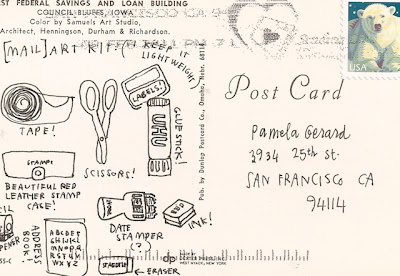 ST FEDERAL SAVINGS AND LOAN BUILDING
COUNCIL BLUFFS, IOWA
Color by Samuels Art Studio,
Architect, Henningson, Durham & Richardson.
[MAIL] ART KIT! (KEEP IN
LIGHTWEIGHT)
LABELS!
TAPE!
SCISSORS!
UHU
GLUE STICK!
STAMP!
BEAUTIFUL RED
LEATHER STAMP
CASE!
ADDRESS
BOOK!
ABCDEF
GHIJKL
MNOPQR
STUV
WXYZ
DATE
STAMPER
(?)
INK!
STAEDTLER
← ERASER
Pub. by Dunlap Postcard Co., Omaha, Nebr. 68118
dp
DEXTER PRESS, INC.
WEST NYACK, NEW YORK
55-C
Post Card
USA
Pamela Gerard
3934 25th St.
SAN FRANCISCO CA
94114